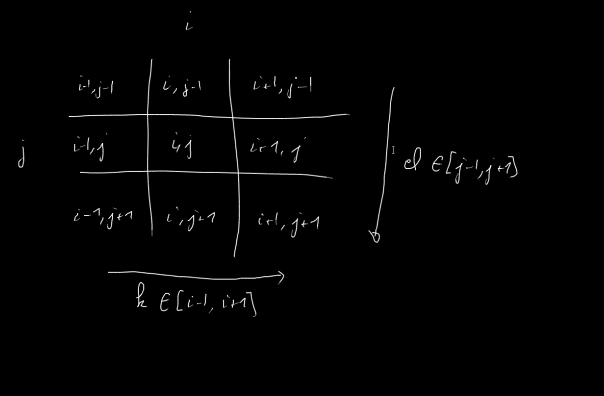 i
i-1,j-1 i,j-1 i+1,j-1
j i-1,j i,j i+1,j
i-1,j+1 i,j+1 i+1,j+1
l ∈[j-1,j+1]
k ∈[i-1,i+1]